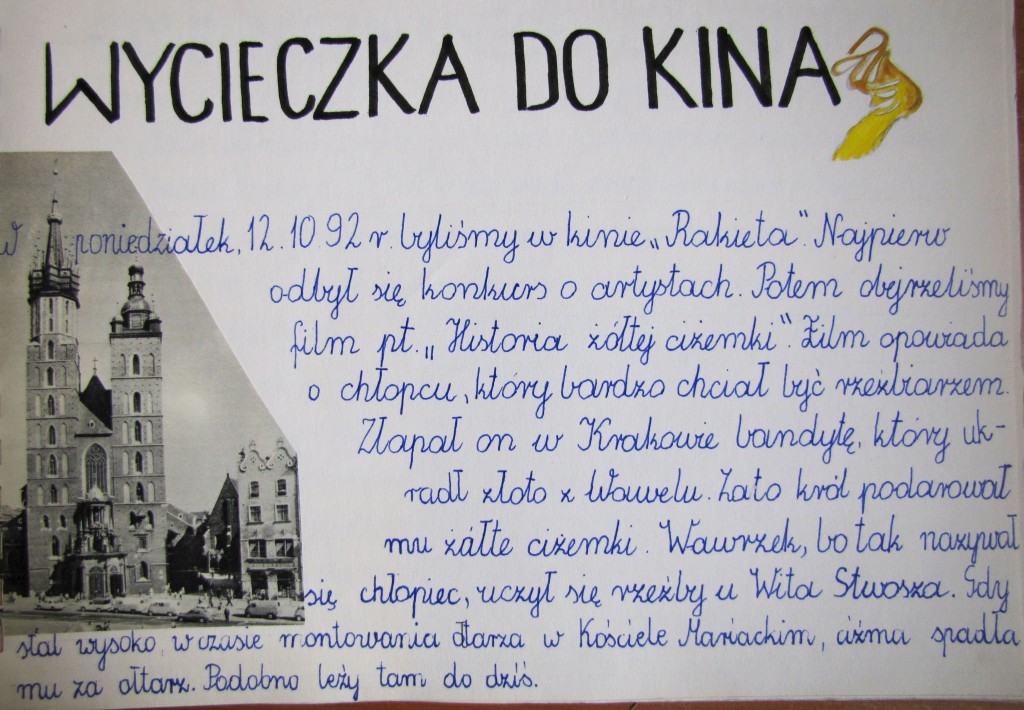 WYCIECZKA DO KINA
W poniedziałek, 12.10.92 r. byliśmy w kinie „Rakieta". Najpierw
odbył się konkurs o artystach. Potem obejrzeliśmy
film pt. „Historia żółtej ciżemki". Film opowiada
o chłopcu, który bardzo chciał być rzeźbiarzem.
Złapał on w Krakowie bandytę, który uk-
radł złoto z Wawelu. Zato król podarował
mu żółte ciżemki. Wawrzek, bo tak nazywał
się chłopiec, uczył się rzeźby u Wita Stwosza. Gdy
stał wysoko, w czasie montowania ołtarza w Kościele Mariackim, ciżma spadła
mu za ołtarz. Podobno leży tam do dziś.